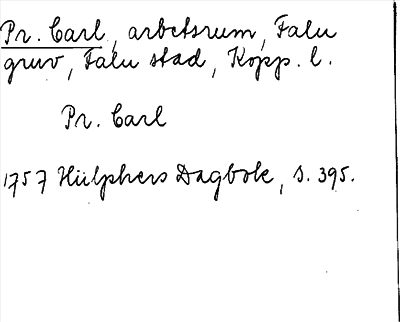 Pr. Carl, arbetsrum, Falu
gruv, Falu stad, Kopp. l.
Pr. Carl
1757 Hülphers Dagbok, s. 395.